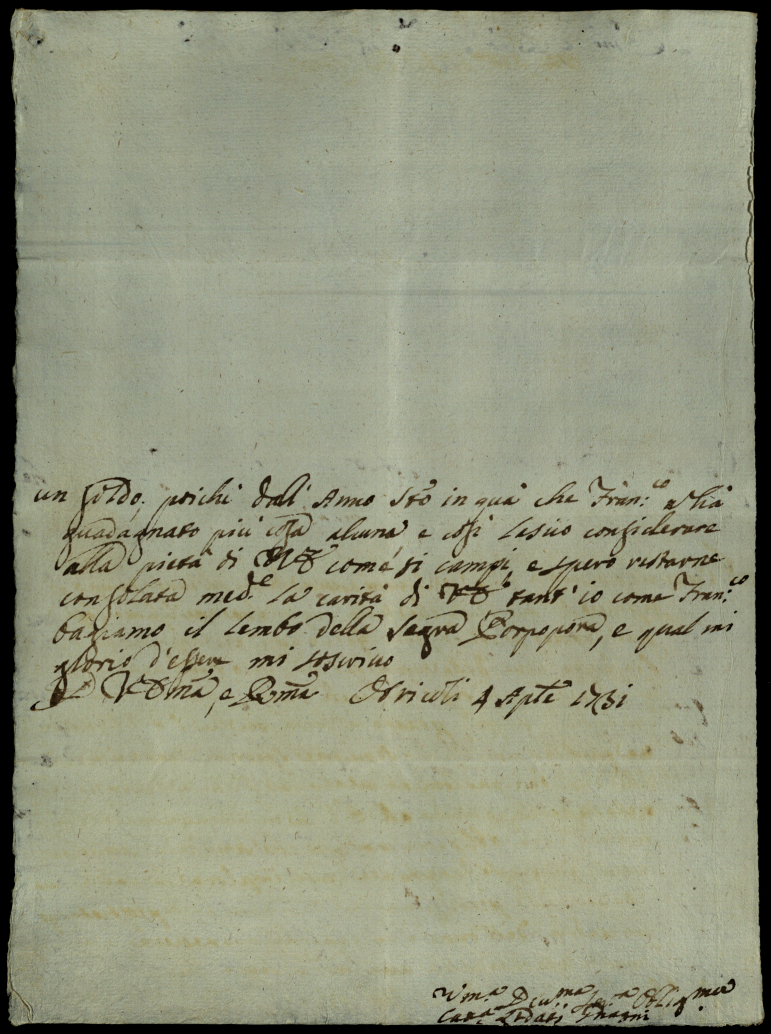 un soldo. poichi dall' Anno Sto in quà che Fran:co à hà
guadagnato più cosa alcuna e così lascio considerare
alla pietà di VE come si campi, e spero restarne
consolata med.e la carità di VE tant' io come Fran:co
bagiamo il lembo della sagra Porpopora, e qual mi
glorio d'essere mi soscrivo
D VE ma, e Rma Otricoli 4 Apte 1731
Vm.a Deu.ma Ser.a Oblig.ma
Cat.a